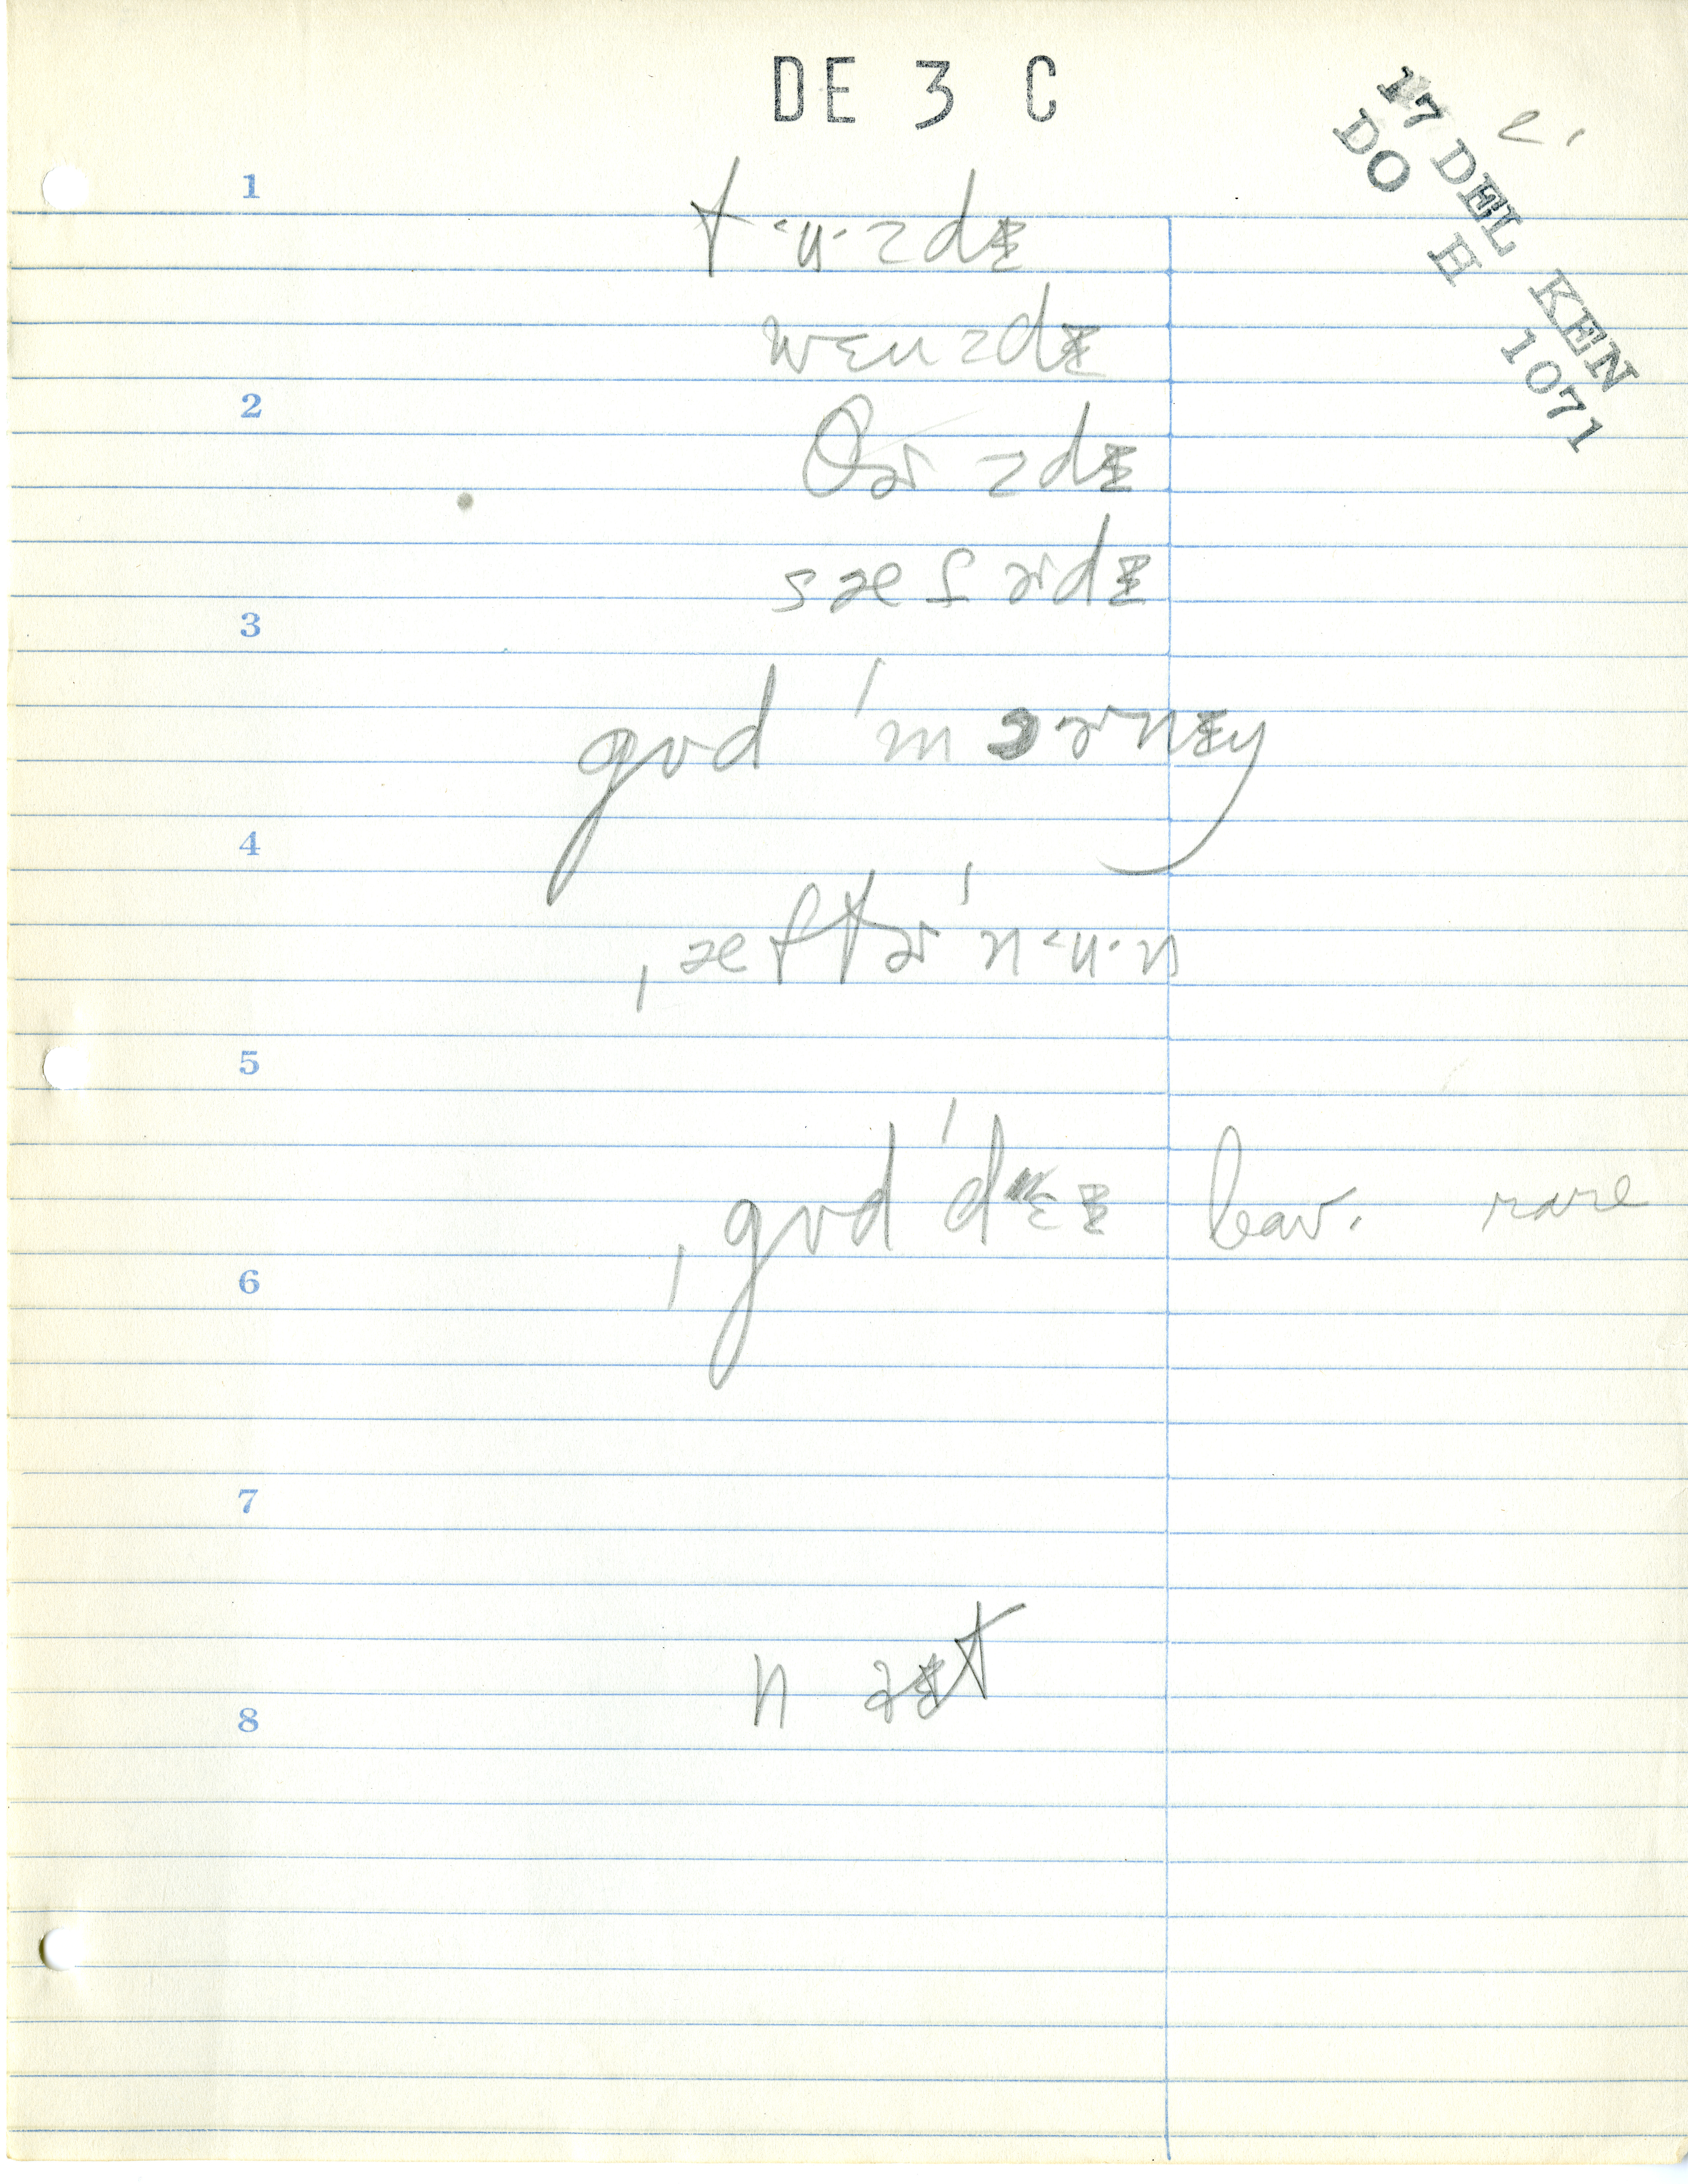 DE 3 C
17 DEL KEN
DO H 1071
e.
1
tʉzdɪ
wɛnzdɪ
2
θɚzdɪ
sætɚdɪ
3
gʊd ˈmɔɚnɪŋ
4
ˌæftɚˈnʉn
5
ˌgʊdˈdɛɪ leav. rare
6
7
n aɪt
8